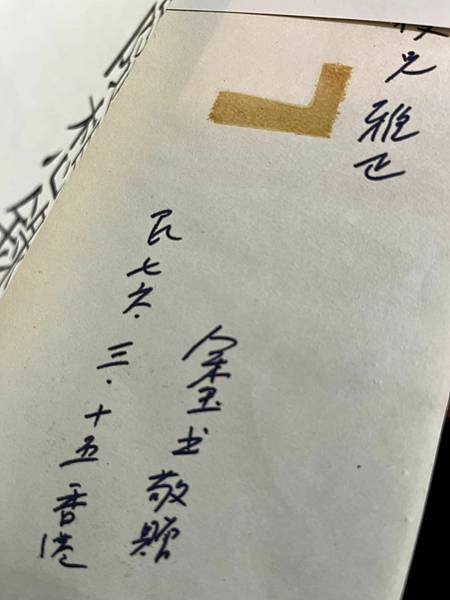 兄 雅正
余玉书敬贈
民七六.三.十五香港